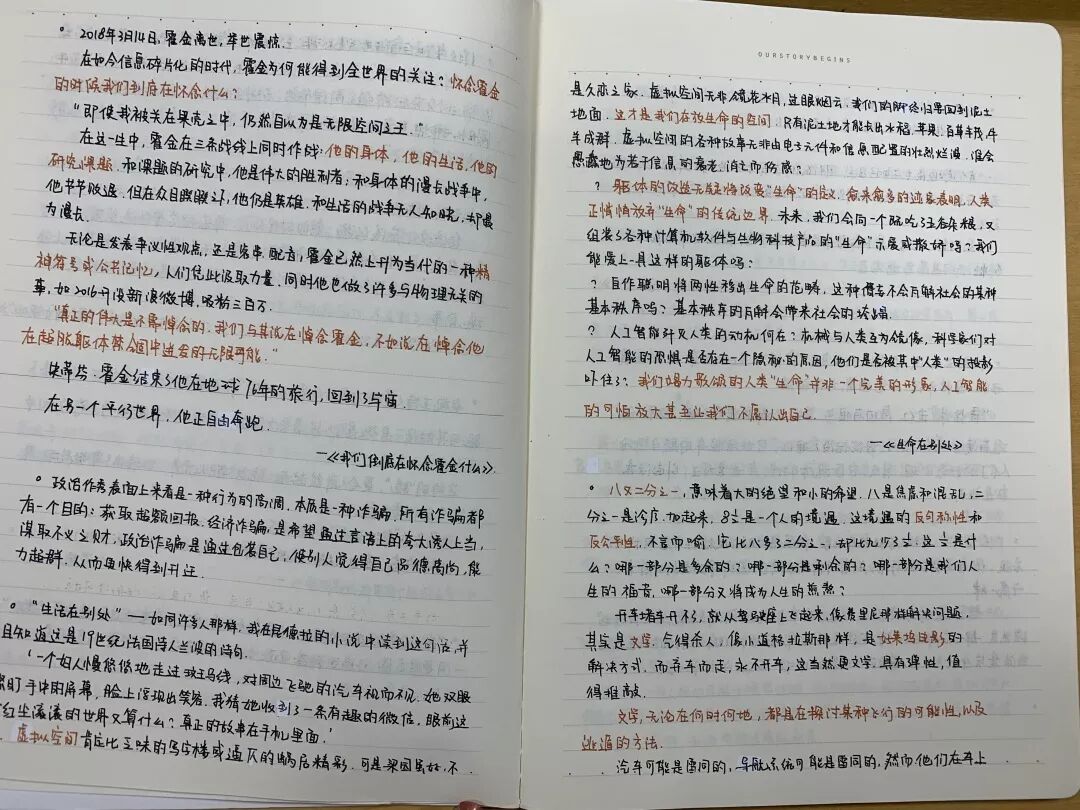 。2018年3月14日，霍金离世，举世震惊．
在如今信息碎片化的时代，霍金为何能得到全世界的关注：怀念霍金
的时候我们到底在怀念什么？
"即使我被关在果壳之中，仍然自以为是无限空间之王．"
在这一生中，霍金在三条战线上同时作战：他的身体，他的生活，他的
研究课题．和课题的研究中，他是伟大的胜利者；和身体的漫长战争中，
他节节败退．但在众目睽睽斗，他仍是英雄．和生活的战争无人知晓，却最
为漫长．
无论是发表争议性观点，还是客串、配音，霍金已然上升为当代的一种精
神符号或公共记忆，人们凭此汲取力量．同时他也做了许多与物理无关的
事，如2016开设新浪微博，吸粉三百万．
"真正的伟大是不需悼念的．我们与其说在悼念霍金，不如说在悼念他
在超脱躯体禁囿中迸密的无限可能．"
霍金结束了他在地球76年的旅行，回到了宇宙．
在另一个平行世界，他正自由奔跑．
—《我们倒底在怀念霍金什么》．
。政治作秀表面上来看是一种行为的高调．本质是一种诈骗．所有诈骗都
有一个目的：获取超额回报．经济诈骗，是希望通过言语上的夸大诱人上当，
谋取不义之财，政治诈骗是通过包装自己，使别人觉得自己品德高尚，能
力超群．从而更快得到升迁．
。"生活在别处"——如同许多人那样，我在昆德拉的小说中读到这句话，并
且知道这是19世纪法国诗人兰波的诗句．
'一个妇人慢悠悠地走过斑马线，对周边飞驰的汽车视而不见．她双眼
盯手中的屏幕，脸上浮现出笑容．我猜她收到了一条有趣的微信．眼前这
红尘滚滚的世界又算什么？真正的故事在手机里面．'
虚拟空间肯定比乏味的写字楼或逼仄的蜗居精彩．可是梁园虽好，不
OURSTORYBEGINS
是久恋之家．虚拟空间无非镜花水月，过眼烟云．我们的脚终归要回到泥土
地面．这才是我们存放生命的空间．只有泥土地才能长出水稻，苹果，百草丰茂，牛
羊成群．虚拟空间的各种故事无非由电子元件和信息配置的壮烈烂漫．谁会
愚蠢地为若干信息的衰老、消亡而伤感？
？躯体的改造无疑将改变"生命"的定义，愈来愈多的迹象表明，人类
正悄悄放弃"生命"的传统边界．未来，我们会向一个脑吃了汪各杂根，又
组装了各种计算机软件与生物科技产品的"生命"示爱或撒娇吗？我们
能爱上一具这样的躯体吗？
？自作聪明将两性移出生命的范畴，这种傻会不会肢解社会的某种
基本秩序吗？基本秩序的肢解会带来社会的塌塌．
？人工智能歼灭人类的动机何在？机械与人类互为镜像，科学家们对
人工智能的恐惧是否存在一个隐秘的原因，他们是否被其中"人类"的投影
吓住了？我们竭力歌颂的人类"生命"并非一个完美的形象，人工智能
的可怕放大甚至让我们不愿认出自己．
—《生命在别处》
。八又二分之一，意味着大的绝望和小的希望．八是焦虑和混乱，二
分之一是冷序．加起来，8½是一个人的境遇．这境遇的反向称性和
反公平性，不言而喻．它比八多了二分之一，却比九少了½．这½是什
么？哪一部分是多余的？哪一部分是剩余的？哪一部分是我们人
生的福音，哪一部分又将成为人生的煎熬？
开车堵车开不了，就从驾驶座上飞起来，像费里尼那样解决问题，
其实是文学．气得杀人，像小道格拉斯那样，是好莱坞电影的
解决方式．而弃车而走，永不开车，这当然更文学，具有弹性，值
得推敲．
文学，无论在何时何地，都是在探讨某种飞行的可能性，以及
逃逼的方法．
汽车可能是雷同的，导航系统可能是雷同的，然而他们在车上